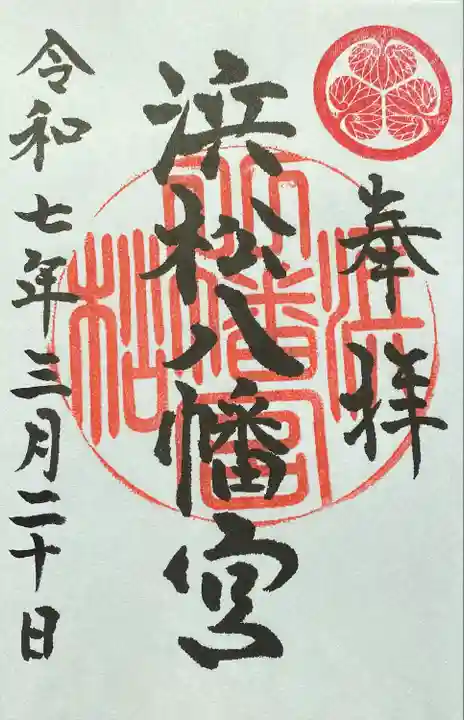 奉拝
浜松八幡宮
令和七年三月二十日
浜松八幡宮